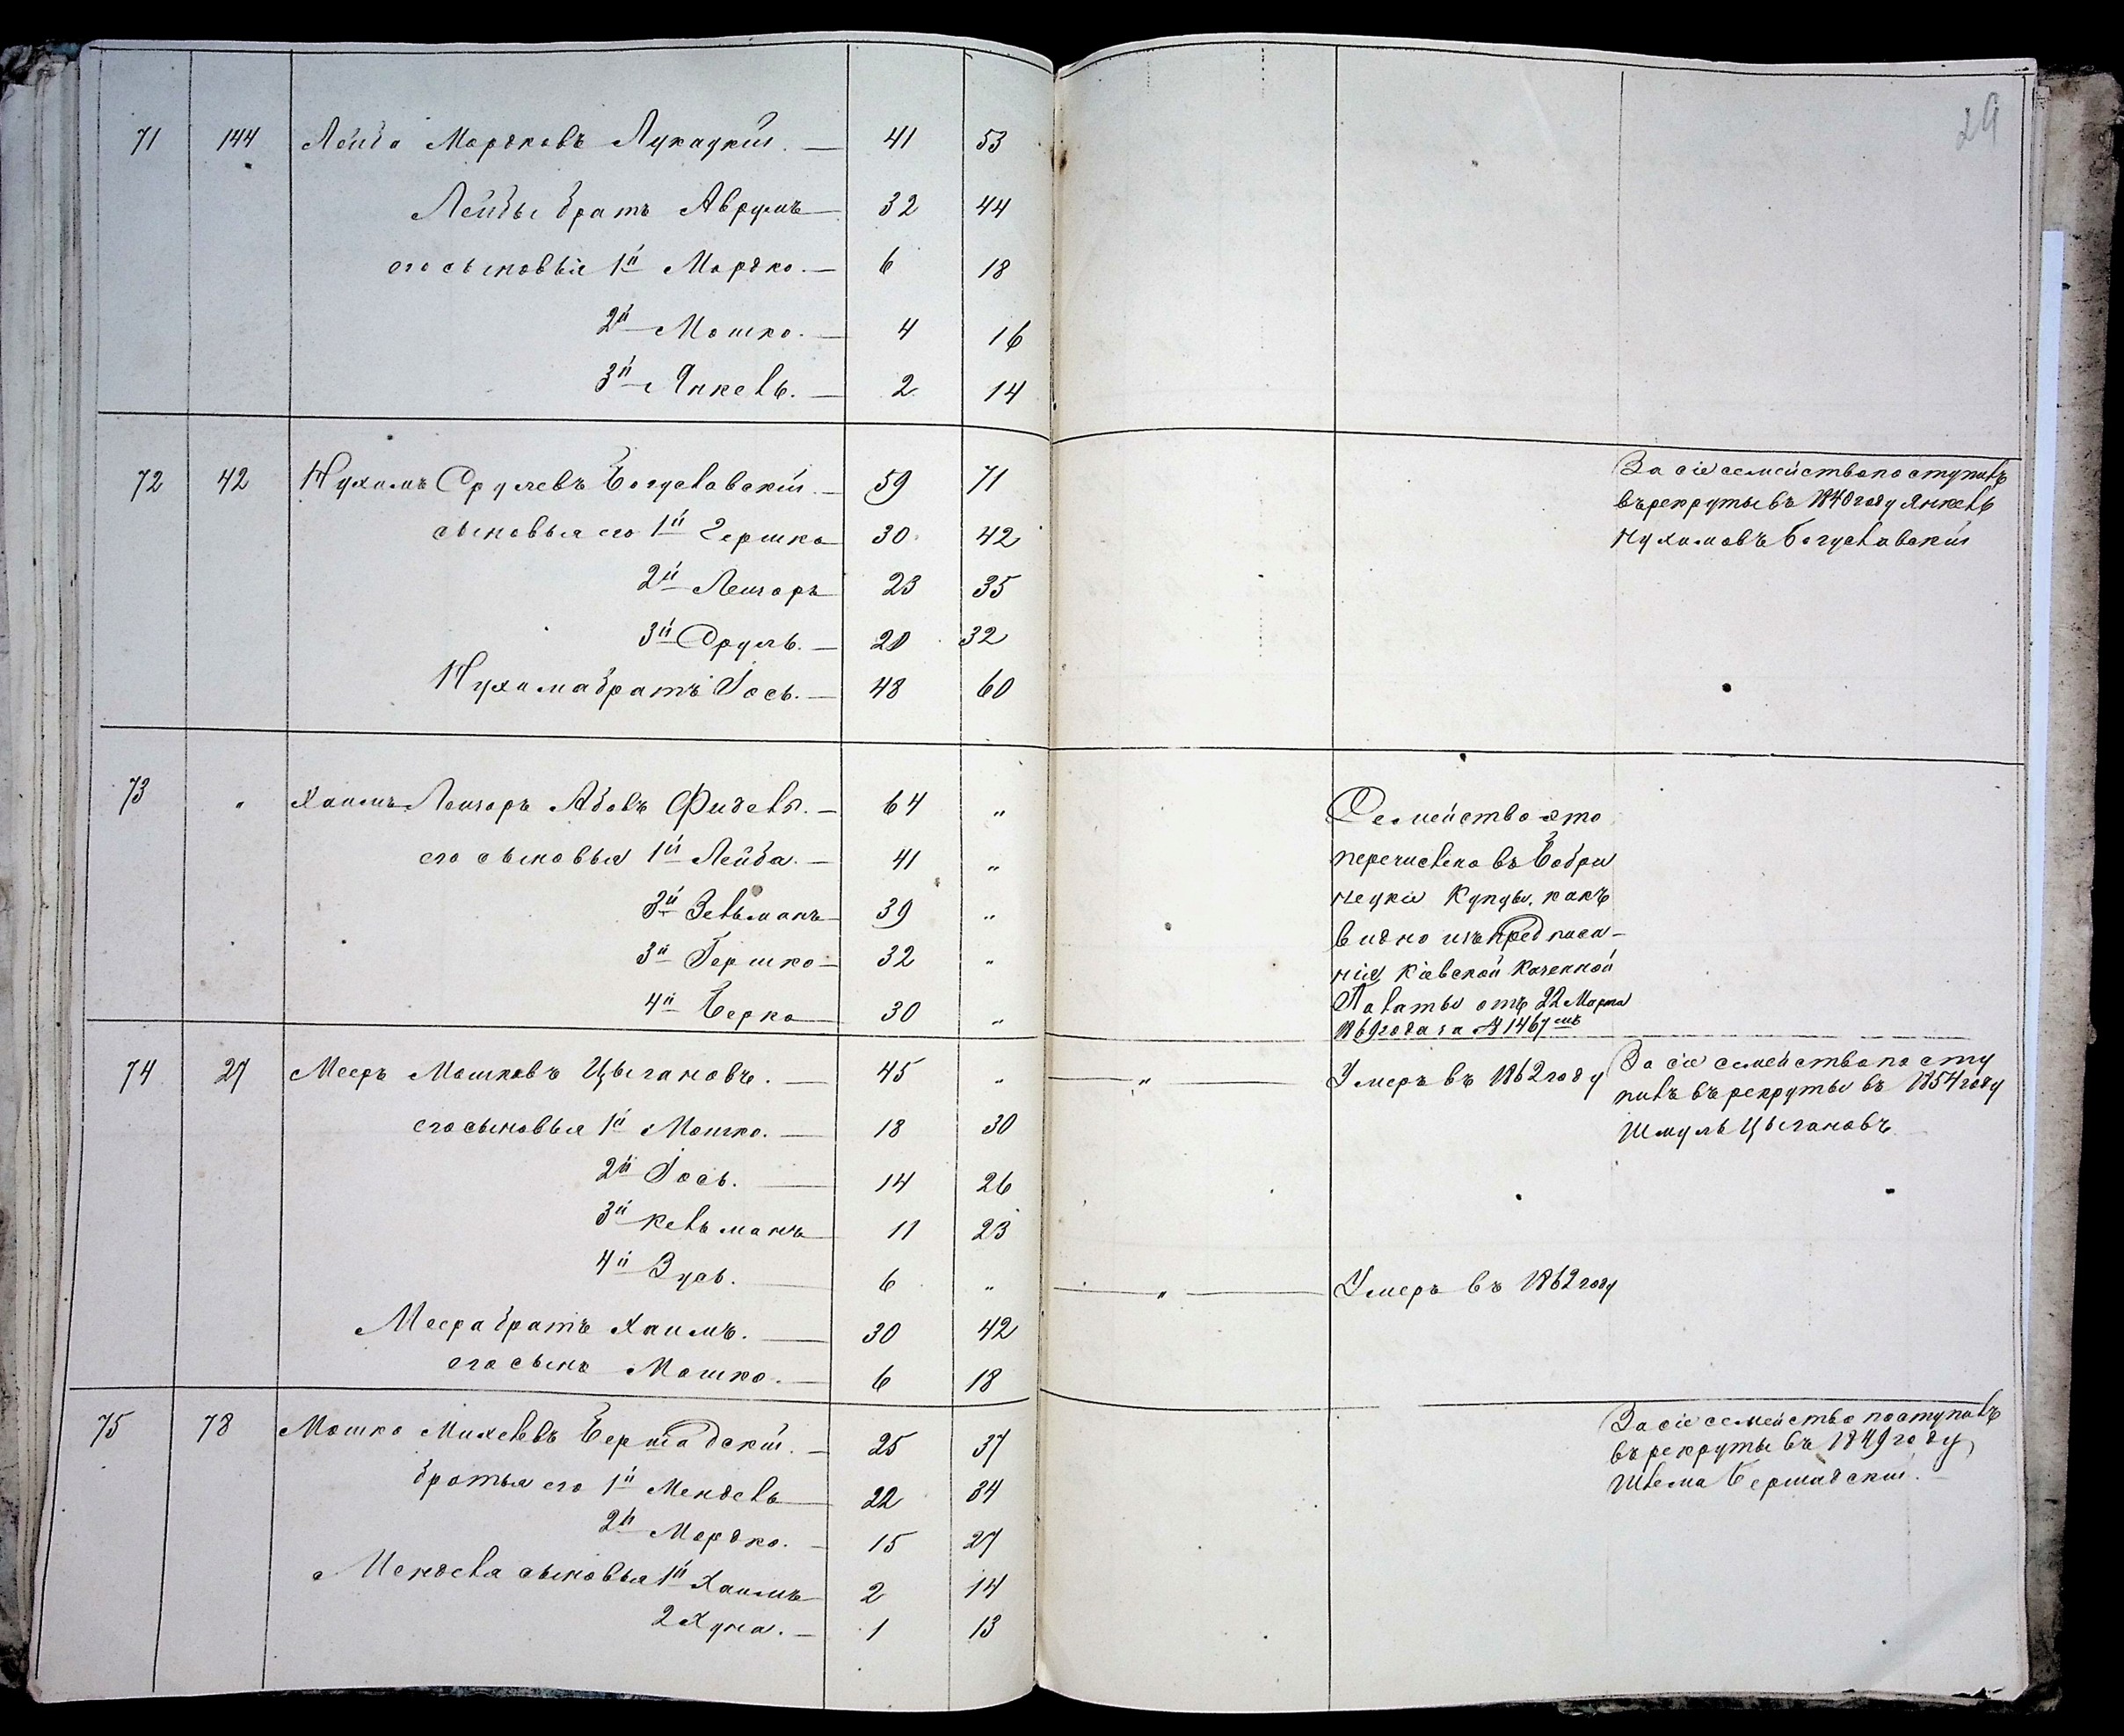 29
71 144 Лейба Мордковъ Лукацкій. — 41 53
Лейбы братъ Аврумъ — 32 44
его сыновья 1й Мордко. — 6 18
2й Мошко. — 4 16
3й Янкель. — 2 14
72 42 Нухимъ Срулевъ Богуславскій. — 59 71
сыновья его 1й Гершко 30 42
2й Лейзоръ 23 35
3й Сруль. — 20 32
Нухима братъ Іось. — 48 60
За сіе семейство поступилъ
въ рекруты въ 1840 году Янкель
Нухимовъ Богуславскій
73 " Хаимъ Лейзоръ Абовъ Фидель. — 64 "
его сыновья 1й Лейба. — 41 "
3й Зельманъ 39 "
3й Гершко — 32 "
4й Берко — 30 "
Семейство это
перечислено въ Бобри
нецкіе Купцы, какъ
видно изъ предписа-
нія Кіевской Казенной
Палаты отъ 22 Марта
1869 года за № 1467мъ
74 27 Мееръ Мошковъ Цыгановъ. — 45 " — " — Умеръ въ 1862 году
его сыновья 1й Мошко. — 18 30
2й Іось. — 14 26
3й Кельманъ 11 23
4й Зусь. — 6 " — " — Умеръ въ 1862 году
Меера братъ Хаимъ. — 30 42
его сынъ Мошко. — 6 18
За сіе семейство посту
пилъ въ рекруты въ 1854 году
Шмуль Цыгановъ
75 78 Мошко Михелевъ Бершадскій. — 25 37
братья его 1й Мендель 22 34
2й Мордко. — 15 27
Менделя сыновья 1й Хаимъ 2 14
2 Хуна. — 1 13
За сіе семейство поступилъ
въ рекруты въ 1849 году
Шлема Бершадскій.